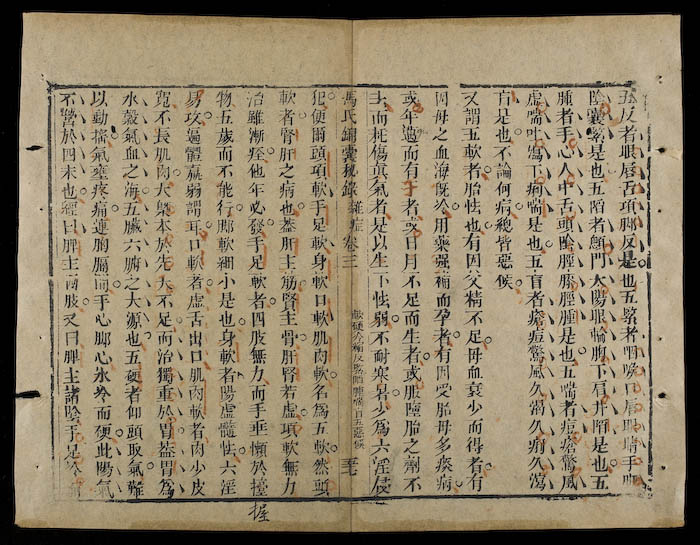 五反者眼唇舌項脚反是也五緊者咽喉口唇眼睛手脚
陰囊緊是也五陷者顖門太陽眼輪腹下肩井陷是也五
腫者手心人中舌頭陰脛膝脛腫是也五喘者痘瘡驚風
虛喘吐瀉下痢喘是也五盲者瘡痘驚風久渴久痢久瀉
盲是也不論何病總皆惡候
又謂五軟者胎怯也有因父精不足母血衰少而得者有
因母之血海既冷用藥强補而孕者有因受胎母多痰病
或年邁而有子者或日月不足而生者或服墮胎之劑不
去而耗傷真氣者是以生下怯弱不耐寒暑少為六淫侵
馮氏錦囊秘錄 雜症 卷三 軟硬冷 反緊陷腫喘盲五惡候
犯便爾頭項軟手足軟身軟口軟肌肉軟名為五軟然頭
軟者腎肝之病也蓋肝主筋腎主骨肝腎若虛項軟無力
治雖漸痊他年必發手足軟者四肢無力而手垂懶於擡
物五歲而不能行脚軟細小是也身軟者陽虛髓怯六淫
易攻遍體羸弱謂耳口軟者虛舌出口肌肉軟者肉少皮
寬不長肌肉大槩本於先天不足而治獨重於胃蓋胃為
水穀氣血之海五臟六腑之大源也五硬者仰頭取氣難
以動搖氣壅疼痛連胸膈間手心脚心氷冷而硬此陽氣
不營於四末也經曰脾主四肢又曰脾主諸陰手足冷
握